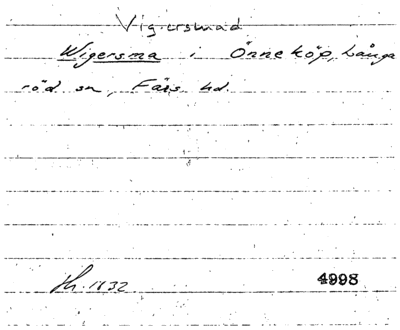 Vigersmad
Wigersma i Önneköp, Långa
röd sn, Färs hd.
Hh. 1832 4998